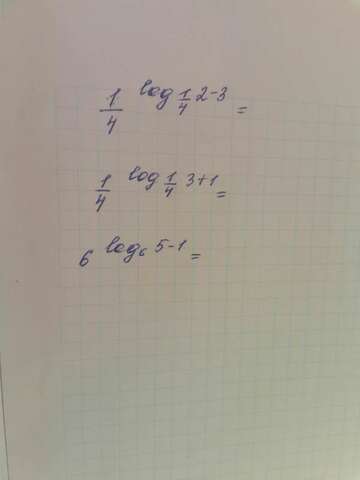 1/4 log 1/4 2-3 =
1/4 log 1/4 3+1 =
6 log6 5-1 =